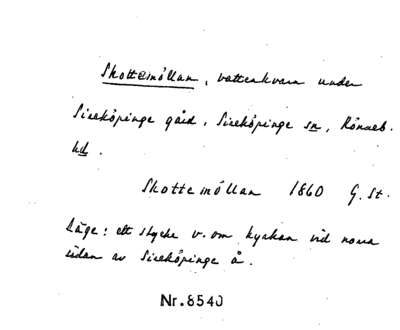 Skottemöllan, vattenkvarn under
Sireköpinge gård, Sireköpinge sn, Rönneb.
hd.
Skottemöllan 1860 G. St.
Läge: ett stycke v. om kyrkan vid norra
sidan av Sireköpinge å.
Nr. 8540